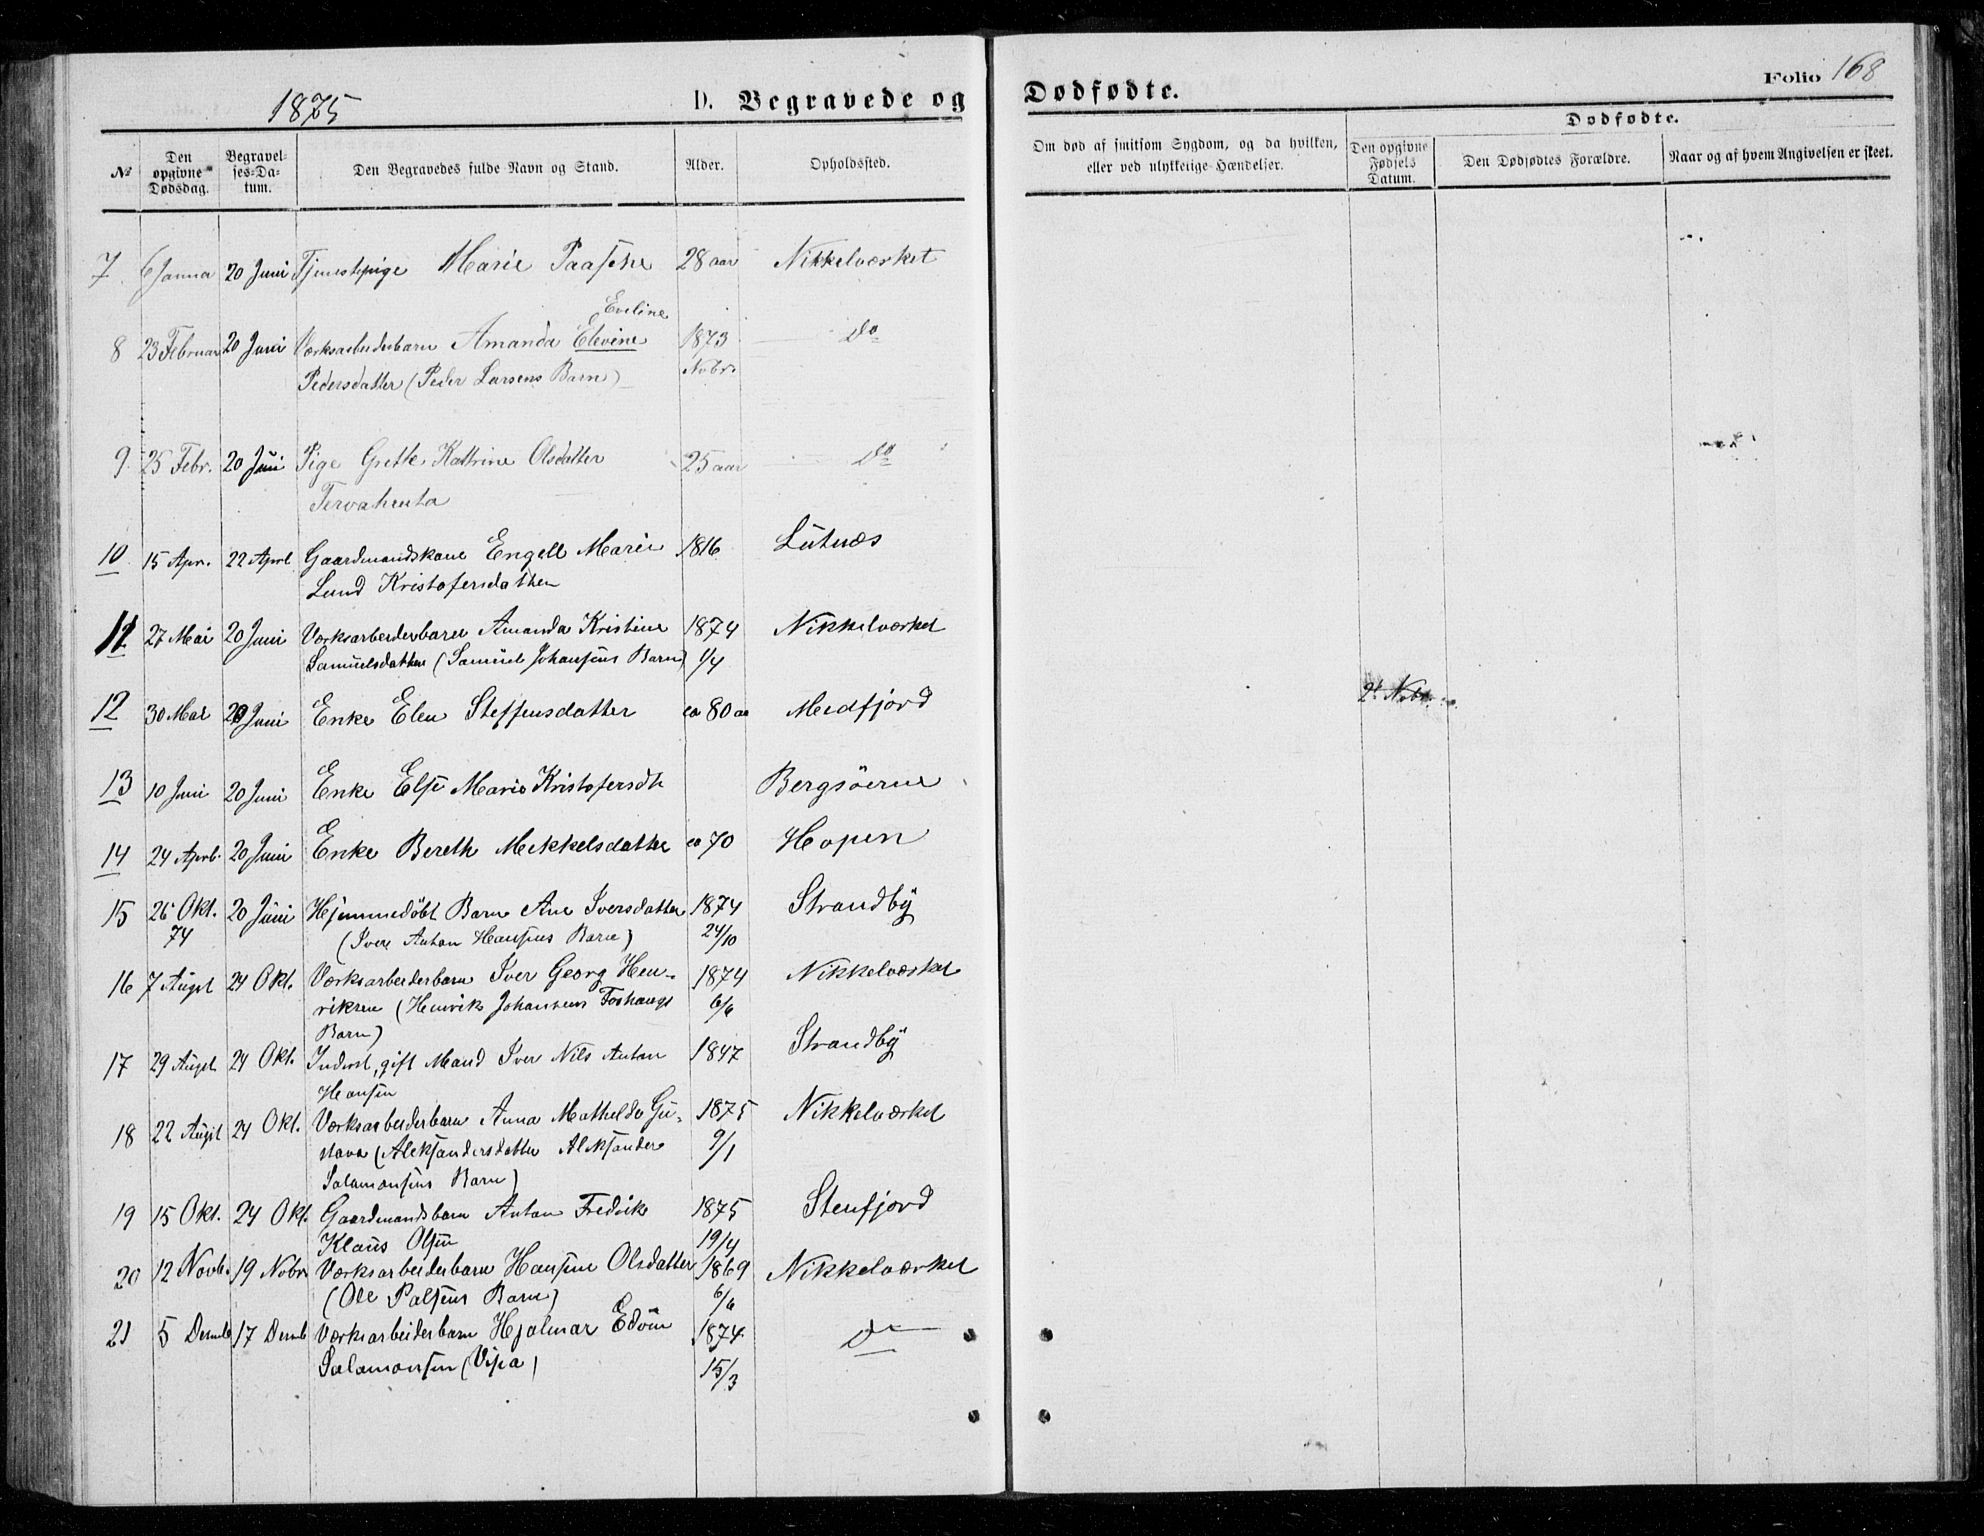 1875
D. Begravede og
Dødfødte.
Folio 168
№
Den opgivne Dødsdag.
Begravel-ses-Da-tum.
Den Begravedes fulde Navn og Stand.
Alder.
Opholdssted.
Om død af smitsom Sygdom, og da hvilken, eller ved ulykkelige Hændelser.
Dødfødte.
Den opgivne Fødsels Datum.
Den Dødfødtes Forældre.
Naar og af hvem Angivelsen er skeet.
7 6 Janua 20 Juni Tjenestepige Marie Paasche 28 aar Nikkelværket
Eveline
8 23 Februar 20 Juni Værksarbeiderbarn Amanda Elevine 1873 do
Pedersdatter (Peder Larsens Barn) Nobr.
9 25 Febr. 20 Juni Pige Grethe Kathrine Olsdatter 25 aar do
Tervahuuta
10 15 Apr. 22 Aprl Gaardmandskone Engell Marie 1816 Lutnæs
Lund Kristofersdatter
11 27 Mai 20 Juni Værksarbeiderbarn Amanda Kristine 1874 Nikkelværket
Samuelsdatter (Samuel Johansens Barn) 1/4
12 30 Mai 20 Juni Enke Elen Steffensdatter ca 80 aa Medfjord
2' Nobr.
13 10 Juni 20 Juni Enke Else Marie Kristofersdtr Bergsöerne
14 24 Aprl. 20 Juni Enke Bereth Mekkelsdatter ca 70 Hopen
15 26 Okt. 20 Juni Hjemmedöbt Barn Ane Iversdatter 1874 Strandby
74 (Iver Anton Hansens Barn) 24/10
16 7 Augst 24 Okt. Værksarbeiderbarn Iver Georg Hen- 1874 Nikkelværket
riksen (Henrik Johansens Foshaugs 6/6
Barn)
17 29 Augst. 24 Okt. Inderst, gift Mand Iver Nils Anton 1847 Strandby
Hansen
18 22 Augst 24 Okt. Værksarbeiderbarn Anna Mathelda Gu- 1875 Nikkelværket
stava (Aleksandersdatter Aleksander 9/1
Salamonsens Barn)
19 15 Okt. 24 Okt. Gaardmandsbarn Anton Fredrik 1875 Stenfjord
Klaus Olsen 19/4
20 12 Novb. 19 Nobr Værksarbeiderbarn Hansine Olsdatter 1869 Nikkelværket
(Ole Palsens Barn) 6/6
21 5 Desmb 17 Desmb Værksarbeiderbarn Hjalmar Edvin 1874 do
Salamonsen (Visa) 15/3